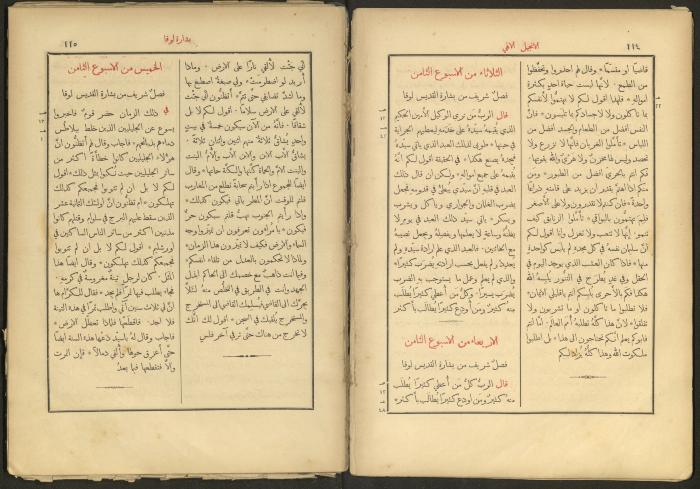 ١١٤
الانجيل الالهي
قاضيًا او مقسّمًا * وقال لهم احذروا وتحفّظوا
من الطمع * لانّها ليست حياة احدٍ بكثرة
امواله * فلهذا اقول لكم لا تهتمّوا لانفسكم
بما تأكلون ولا لاجسادكم بما تلبسون * فانّ
النفس افضل من الطعام والجسد افضل من
اللباس * تأمّلوا الغربان فانّها لا تزرع ولا
تحصد وليس لها مخزنٌ ولا هريٌ والله يقوتها *
فكم انتم بالحري افضل من الطيور * ومن
منكم اذا اهتمّ يقدر ان يزيد على قامته ذراعًا
واحدة * فان كنتم لا تقدرون ولا على الاصغر
فلمَ تهتمّون بالبواقي * تأمّلوا الزنابق كيف
تنمو * انّها لا تتعب ولا تغزل وانا اقول لكم
انّ سليمان نفسه في كل مجده لم يلبس كواحدةٍ
منها * فاذا كان العشب الذي يوجد اليوم في
الحقل وفي غدٍ يُطرَح في التنّور يلبسه الله
هكذا فكم بالأحرى يلبسكم انتم يا قليلي الايمان *
فلا تطلبوا ما تأكلون او ما تشربون ولا
تقلقوا * لانّ هذا كلّهُ تطلبهُ امم العالم * امّا انتم
فابوكم يعلم انّكم تحتاجون الى هذا * بل اطلبوا
ملكوت الله وهذا كلّهُ يُزاد لكم
الثلاثاء من الاسبوع الثامن
فصلٌ شريف من بشارة القديس لوقا
قال الربّ مَن ترى الوكيل الأمين الحكيم
الذي يقيمهُ سيّدهُ على خدمه ليعطيهم الجراية
في حينها * طوبى لذلك العبد الذي يأتي سيّدهُ
فيجدهُ يصنع هكذا * في الحقيقة اقول لكم انّهُ
يقيمهُ على جميع امواله * ولكن ان قال ذلك
العبد في قلبه انّ سيّدي يُبطئ في قدومه فجعل
يضرب الغلمان والجواري وياكل ويشرب
ويسكر * يأتي سيّد ذلك العبد في يومٍ لا
يظنّهُ وساعةٍ لا يعلمها ويفصلهُ ويجعل نصيبهُ
مع الخائنين * فالعبد الذي علم ارادة سيّدهِ ولم
يُعِدد ولم يفعل بحسب ارادتهِ يُضرَب كثيرًا *
والذي لم يعلم وعمل ما يستوجب به الضرب
يُضرَب يسيرًا * وكلّ من أُعطي كثيرًا يُطلَب
منهُ كثيرٌ ومن اودع كثيرًا يُطالَب باكثر
الاربعاء من الاسبوع الثامن
فصلٌ شريف من بشارة القديس لوقا
قال الربّ كلّ من أُعطي كثيرًا يُطلَب
منهُ كثيرٌ ومن اودع كثيرًا يُطالَب باكثر *
١٢
٤٢
١٢
٤٨
بشارة لوقا
١١٥
اني جئت لألقي نارًا على الارض * وماذا
أُريد لو اضطرمت * ولي صبغةٌ اصطبغ بها
وما اشدّ تضايقي حتّى تتمّ * أتظنّون اني جئت
لألقي على الارض سلامًا * اقول لكم لا بل
شقاقًا * فانّهُ من الآن يكون خمسةٌ في بيتٍ
واحدٍ يشاقّ ثلاثةٌ منهم اثنين واثنان ثلاثةً *
يشاقّ الأب الابن والابن الأب والأمّ البنت
والبنت الامّ والحماة كنّتها والكنّة حماتها * وقال
ايضًا للجموع اذا رأيتم سحابةً تطلع من المغارب
قلتم للوقت انّ المطر يأتي فيكون كذلك *
واذا رأيتم الجنوب تهبّ قلتم سيكون حرٌّ
فيكون * يا مراؤون تعرفون ان تميّزوا وجه
السماء والارض فكيف لا تميّزون هذا الزمان *
ولماذا لا تحكمون بالعدل من تلقاء انفسكم *
وفيما انت ذاهبٌ مع خصمك الى الحاكم ابذل
الجهد وانت في الطريق في التخلّص منهُ لئلّا
يجرّك الى القاضي فيُسلمك القاضي الى المستخرج
والمستخرج يلقيك في السجن * اقول لك انّك
لا تخرج من هناك حتّى توفي آخر فلس
الخميس من الاسبوع الثامن
فصلٌ شريف من بشارة القديس لوقا
في ذلك الزمان حضر قومٌ فاخبروا
يسوع عن الجليليين الذين خلط بيلاطس
دماءهم بذبائحهم * فاجاب وقال لهم أتظنّون انّ
هؤلاء الجليليين كانوا خطأةً اكثر من
سائر الجليليين حيث نُكبوا بمثل ذلك * اقول
لكم لا بل ان لم تتوبوا فجميعكم كذلك
تهلكون * ام تظنّون انّ اولئك الثمانية عشر
الذين سقط عليهم البرج في سلوام وقتلهم كانوا
مذنبين اكثر من سائر الناس الساكنين في
اورشليم * اقول لكم لا بل ان لم تتوبوا
فجميعكم كذلك تهلكون * وقال ايضًا هذا
المثل * كان لرجلٍ تينةٌ مغروسةٌ في كرمه
فجاء يطلب فيها ثمرًا فلم يجد * فقال للكرّام ها
انّ لي ثلاث سنين آتي واطلب ثمرًا في هذه التينة
فلا اجد * فاقطعها فلماذا تعطّل الارض *
فاجاب وقال لهُ يا سيّد دعها هذه السنة ايضًا
حتّى اعزق حولها وألقي دمالًا * فان اثمرت
والا فتقطعها فيما بعدُ
١٣
١